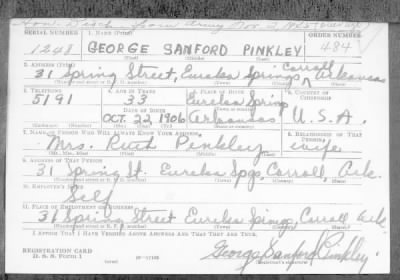 Hon. Disch. from Army Nov. 2, 1945
SERIAL NUMBER 1. NAME (Print) ORDER NUMBER
1248 GEORGE SANFORD PINKLEY 484
(First) (Middle) (Last)
2. ADDRESS (Print)
31 Spring Street, Eureka Springs, Carroll Arkansas
(Number and street or R. F. D. number) (Town) (County) (State)
3. TELEPHONE 4. AGE IN YEARS 5. PLACE OF BIRTH 6. COUNTRY OF CITIZENSHIP
5191 33 Eureka Spring
DATE OF BIRTH (Town or county)
OCT. 22, 1906 Arkansas U.S.A.
(Mo.) (Day) (Yr.) (State or country)
7. NAME OF PERSON WHO WILL ALWAYS KNOW YOUR ADDRESS 8. RELATIONSHIP OF THAT PERSON
Mrs. Ruth Pinkley wife
(Mr., Mrs., Miss) (First) (Middle) (Last)
9. ADDRESS OF THAT PERSON
31 Spring St. Eureka Spgs. Carroll, Ark.
(Number and street or R. F. D. number) (Town) (County) (State)
10. EMPLOYER'S NAME
Self
11. PLACE OF EMPLOYMENT OR BUSINESS
31 Spring Street Eureka Springs, Carroll Ark.
(Number and street or R. F. D. number) (Town) (County) (State)
I AFFIRM THAT I HAVE VERIFIED ABOVE ANSWERS AND THAT THEY ARE TRUE.
REGISTRATION CARD
D. S. S. Form 1 16—17105 George Sanford Pinkley
(over) (Registrant's signature)